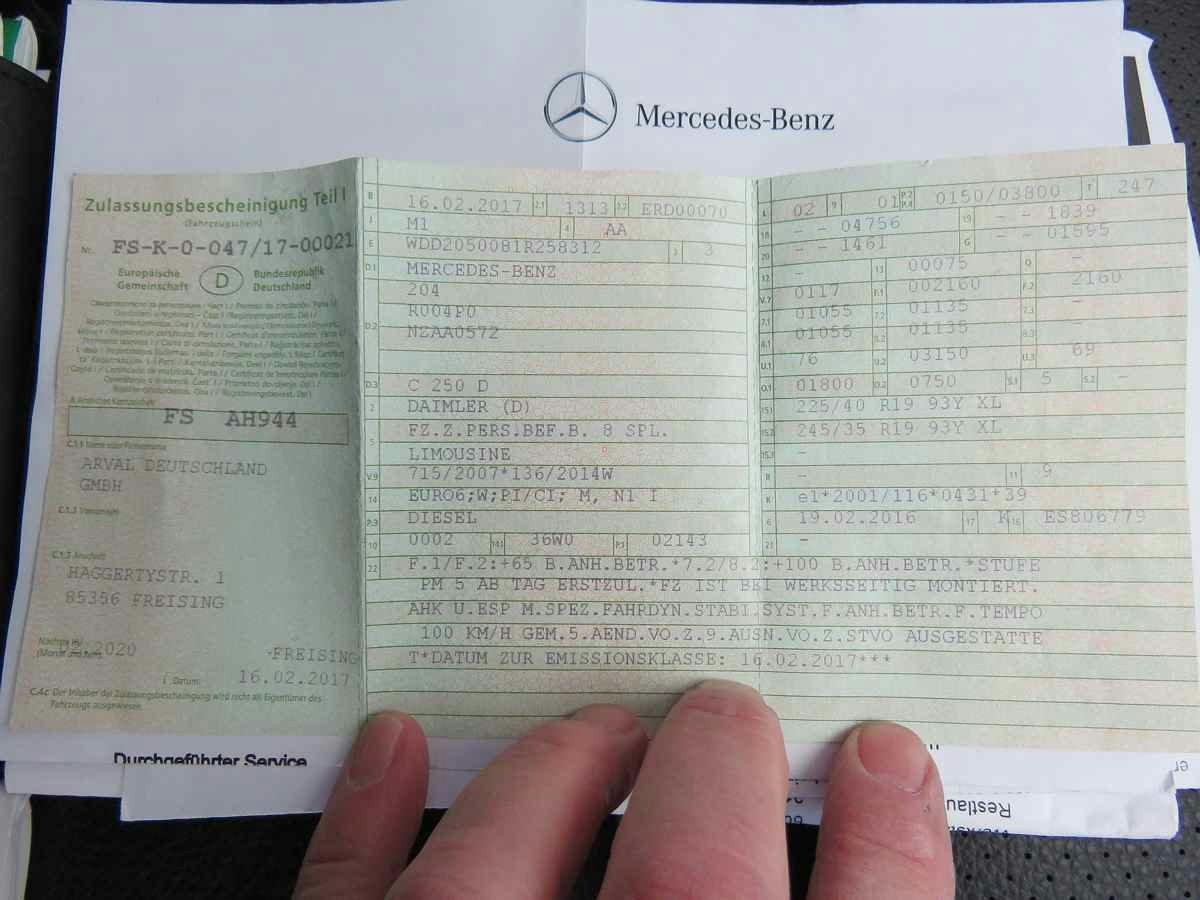 Mercedes-Benz
Zulassungsbescheinigung Teil I
(Fahrzeugschein)
Nr. FS-K-0-047/17-00021
Europäische Gemeinschaft
D
Bundesrepublik Deutschland
A Amtliches Kennzeichen
FS AH944
C.1.1 Name oder Firmenname
ARVAL DEUTSCHLAND
GMBH
C.1.2 Vorname(n)
C.1.3 Anschrift
HAGGERTYSTR. 1
85356 FREISING
Nächste HU
(Monat und Jahr)
02.2020
FREISING
I Datum: 16.02.2017
C.4c Der Inhaber der Zulassungsbescheinigung wird nicht als Eigentümer des
Fahrzeugs ausgewiesen.
B 16.02.2017 2.1 1313 2.2 ERD00070
J M1 4 AA
E WDD2050081R258312 3 3
D.1 MERCEDES-BENZ
204
D.2 R004P0
NZAA0572
D.3 C 250 D
2 DAIMLER (D)
5 FZ.Z.PERS.BEF.B. 8 SPL.
LIMOUSINE
V.9 715/2007*136/2014W
14 EURO6;W;PI/CI; M, N1 I
P.3 DIESEL
10 0002 14.1 36W0 P.1 02143
L 02 9 01 P.2 P.4 0150/03800 T 247
18 - - 04756 19 - - 1839
20 - - 1461 G - - 01595
12 - 13 00075 Q -
V.7 0117 F.1 002160 F.2 2160
7.1 01055 7.2 01135 7.3 -
8.1 01055 8.2 01135 8.3 -
U.1 76 U.2 03150 U.3 69
O.1 01800 O.2 0750 S.1 5 S.2 -
15.1 225/40 R19 93Y XL
15.2 245/35 R19 93Y XL
15.3 -
R - 11 9
K e1*2001/116*0431*39
6 19.02.2016 17 K 16 ES806779
21 -
22 F.1/F.2:+65 B.ANH.BETR.*7.2/8.2:+100 B.ANH.BETR.*STUFE
PM 5 AB TAG ERSTZUL.*FZ IST BEI WERKSSEITIG MONTIERT.
AHK U.ESP M.SPEZ.FAHRDYN.STABI.SYST.F.ANH.BETR.F.TEMPO
100 KM/H GEM.5.AEND.VO.Z.9.AUSN.VO.Z.STVO AUSGESTATTE
T*DATUM ZUR EMISSIONSKLASSE: 16.02.2017***
Durchgeführter Service